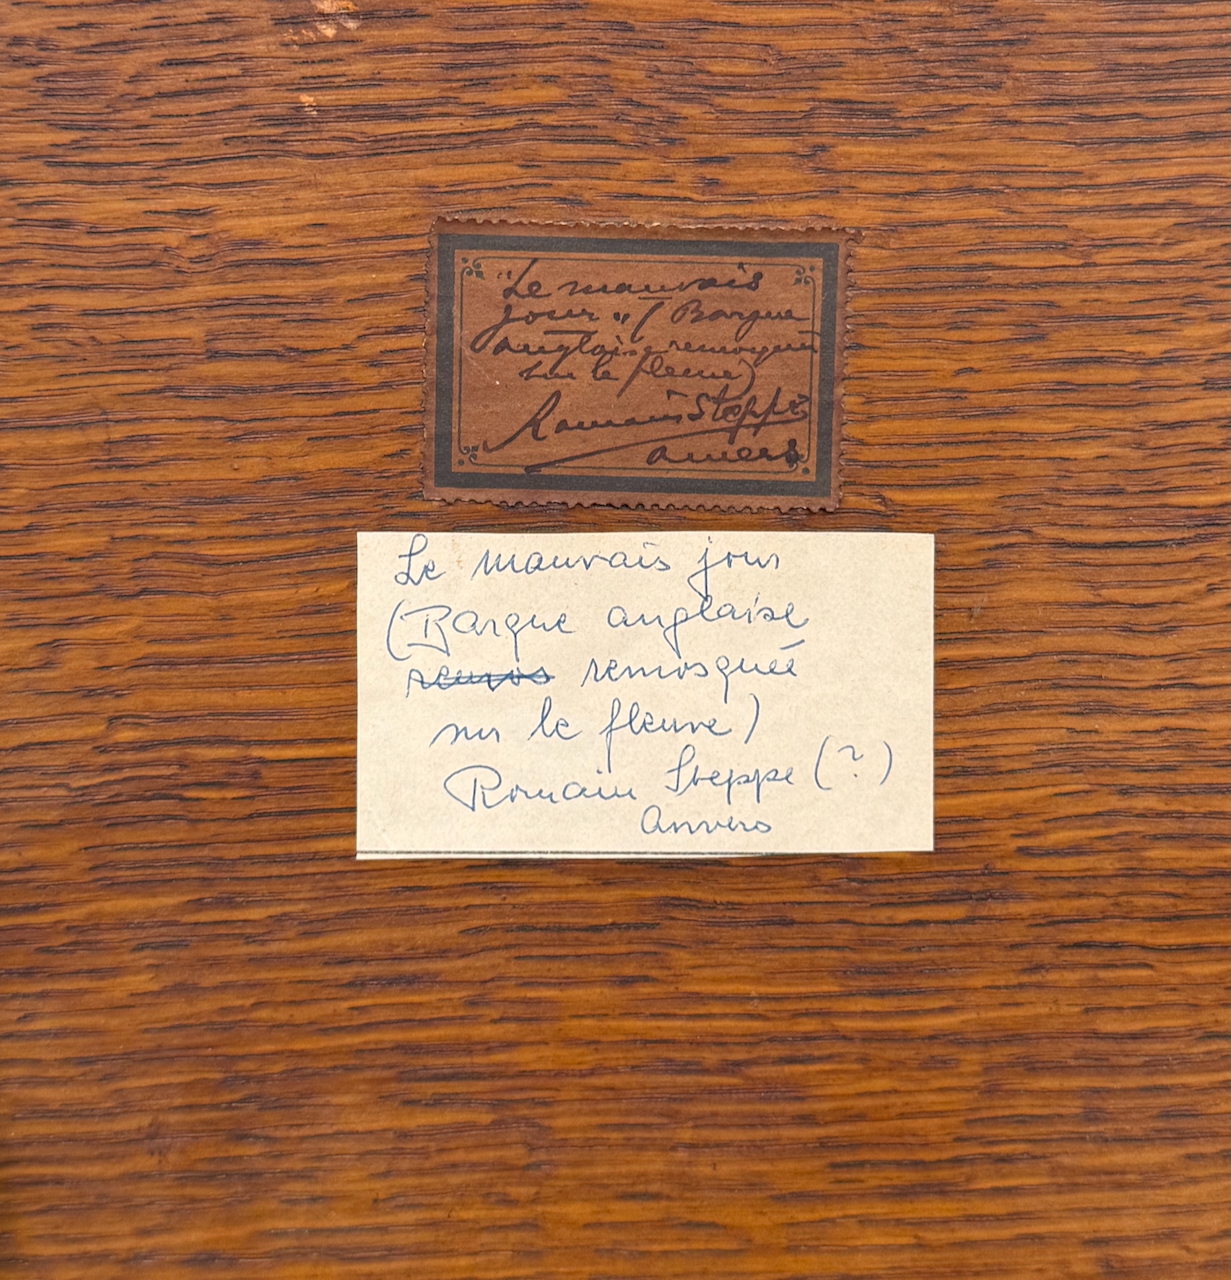 "Le mauvais
jour" (Barque
anglaise remorquée
sur le fleuve)
Romain Steppe
Anvers
Le mauvais jour
(Barque anglaise
remos remosquée
sur le fleuve)
Romain Steppe (?)
Anvers